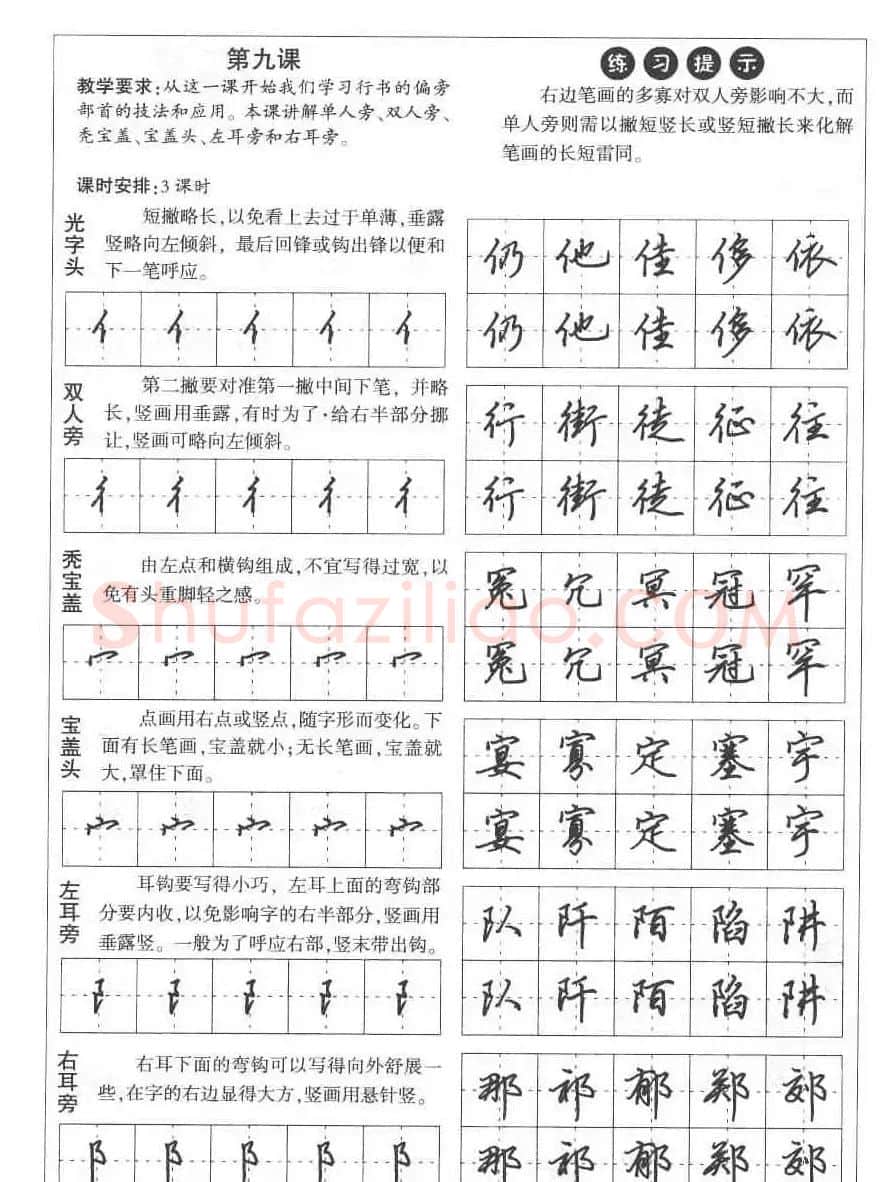 第九课
教学要求:从这一课开始我们学习行书的偏旁
部首的技法和应用。本课讲解单人旁、双人旁、
秃宝盖、宝盖头、左耳旁和右耳旁。
课时安排:3 课时
练习提示
右边笔画的多寡对双人旁影响不大,而
单人旁则需以撇短竖长或竖短撇长来化解
笔画的长短雷同。
光字头
短撇略长,以免看上去过于单薄,垂露
竖略向左倾斜，最后回锋或钩出锋以便和
下一笔呼应。
亻亻亻亻亻
仍他佳侈依
仍他佳侈依
双人旁
第二撇要对准第一撇中间下笔，并略
长,竖画用垂露,有时为了·给右半部分挪
让,竖画可略向左倾斜。
彳彳彳彳彳
行街徒征往
行街徒征往
秃宝盖
由左点和横钩组成,不宜写得过宽,以
免有头重脚轻之感。
冖冖冖冖冖
冤冗冥冠罕
冤冗冥冠罕
Shufaziliao.COM
宝盖头
点画用右点或竖点,随字形而变化。下
面有长笔画,宝盖就小;无长笔画,宝盖就
大,罩住下面。
宀宀宀宀宀
宴寡定塞宇
宴寡定塞宇
左耳旁
耳钩要写得小巧，左耳上面的弯钩部
分要内收,以免影响字的右半部分,竖画用
垂露竖。一般为了呼应右部,竖末带出钩。
阝阝阝阝阝
队阡陌陷阱
队阡陌陷阱
右耳旁
右耳下面的弯钩可以写得向外舒展一
些,在字的右边显得大方,竖画用悬针竖。
阝阝阝阝阝
那祁郁郑郊
那祁郁郑郊